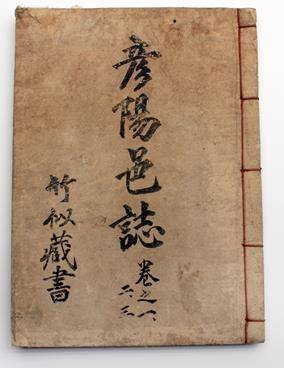 彦陽邑誌
卷之一
二三
竹 藏書